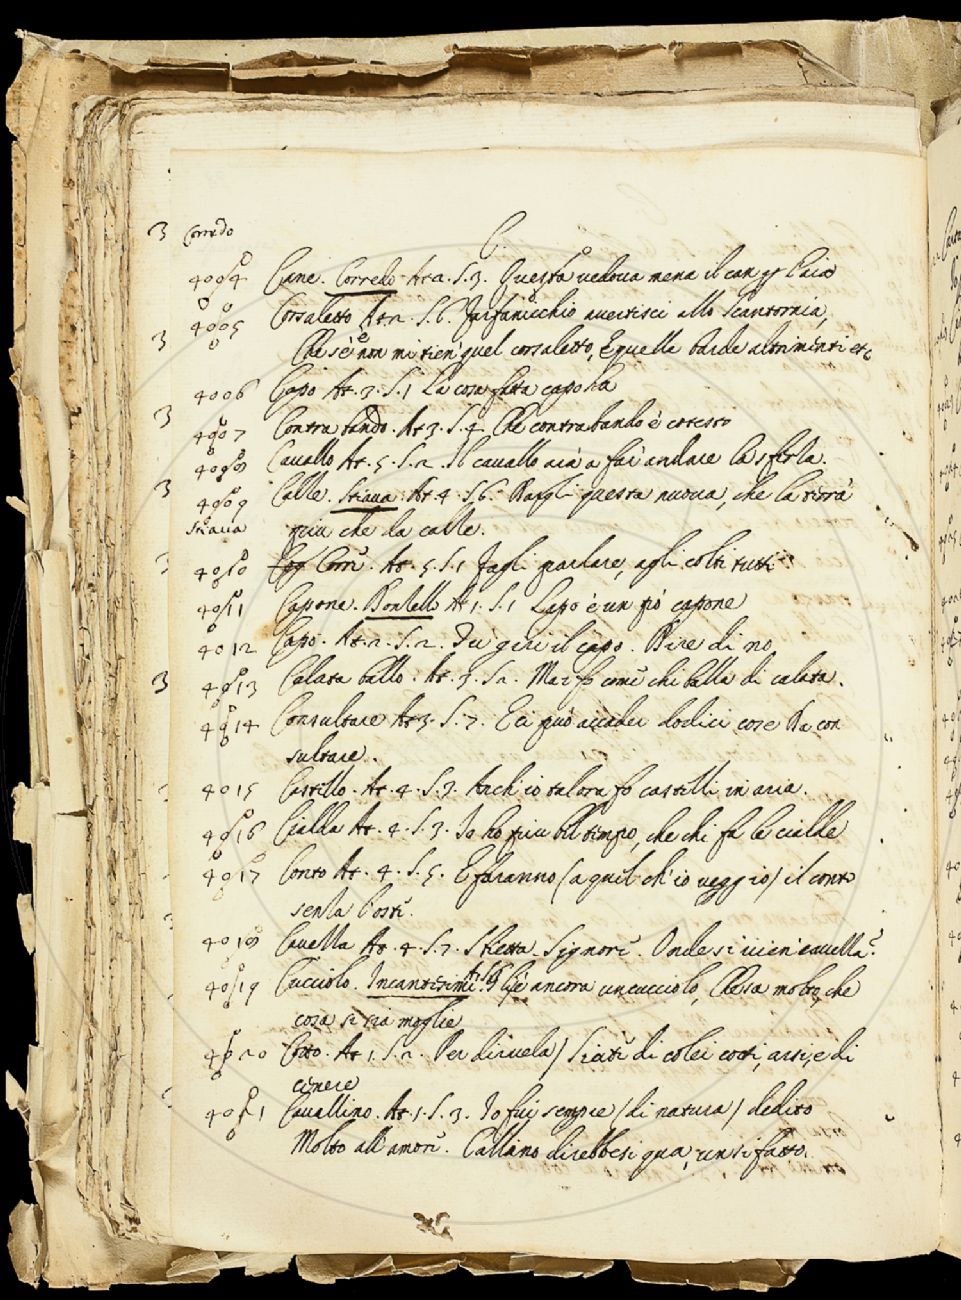 3 Corredo
C.
4004 Cane. Corredo. At. 2. S. 3. Questa vedova mena il can per l'aia
4005 Corsaletto At. 2. S. 6. Farfanicchio avertisci allo
3 Che se non mi tien quel corsaletto, E quelle barde altriminti etc
4006 Capo At. 3. S. 1 La cosa fatta capo ha
3 4007 Contrabando. At 3. S. 4. Che contrabando è cotesto
4008 Cavallo At. 5. S. 2. Il cavallo a fa' andare la sferla.
3 4009 Calle. Stiava. At 4. S. 6. questa nuova, che la
Stiava più che la calle.
3 4010 Corr. At. 5. S. 1 Fagli parlare, agli colti tutti
4011 Capone. At 1. S. 1 Lapo è un capone
4012 Capo. At. 2. S. 2. Tu geri il capo. Dire di no
3 4013 Calata ballo. At. 5. S. 2. Ma i' fo come chi balla di calata.
4014 Consultare At 3. S. 7. E ci può accader dodici cose Da con
sultare.
4015 Castello. At. 4. S. 3. Anch'io talora fo castelli in aria.
4016 Cialda At. 4. S. 3. Io ho più bel tempo, che chi fa le cialde
4017 Conto At. 4. S. 5. E faranno (a quel ch'io veggio) il conto
senza l'oste.
4018 Cavella At. 4. S. 7. Signore. Onde si vien cavelle?
4019 Cucciolo. ancora un cucciolo, Che sa molto, che
cosa si sia moglie
4020 Cotto. At 1. S. 2. Per dirvela / Siate di colei cotti, arsi, e di
cenere
4021 Cavallino. At. 1. S. 3. Io fui sempre (di natura) dedito
Molto all'amore. Callano direbbesi qua, un sì fatto.